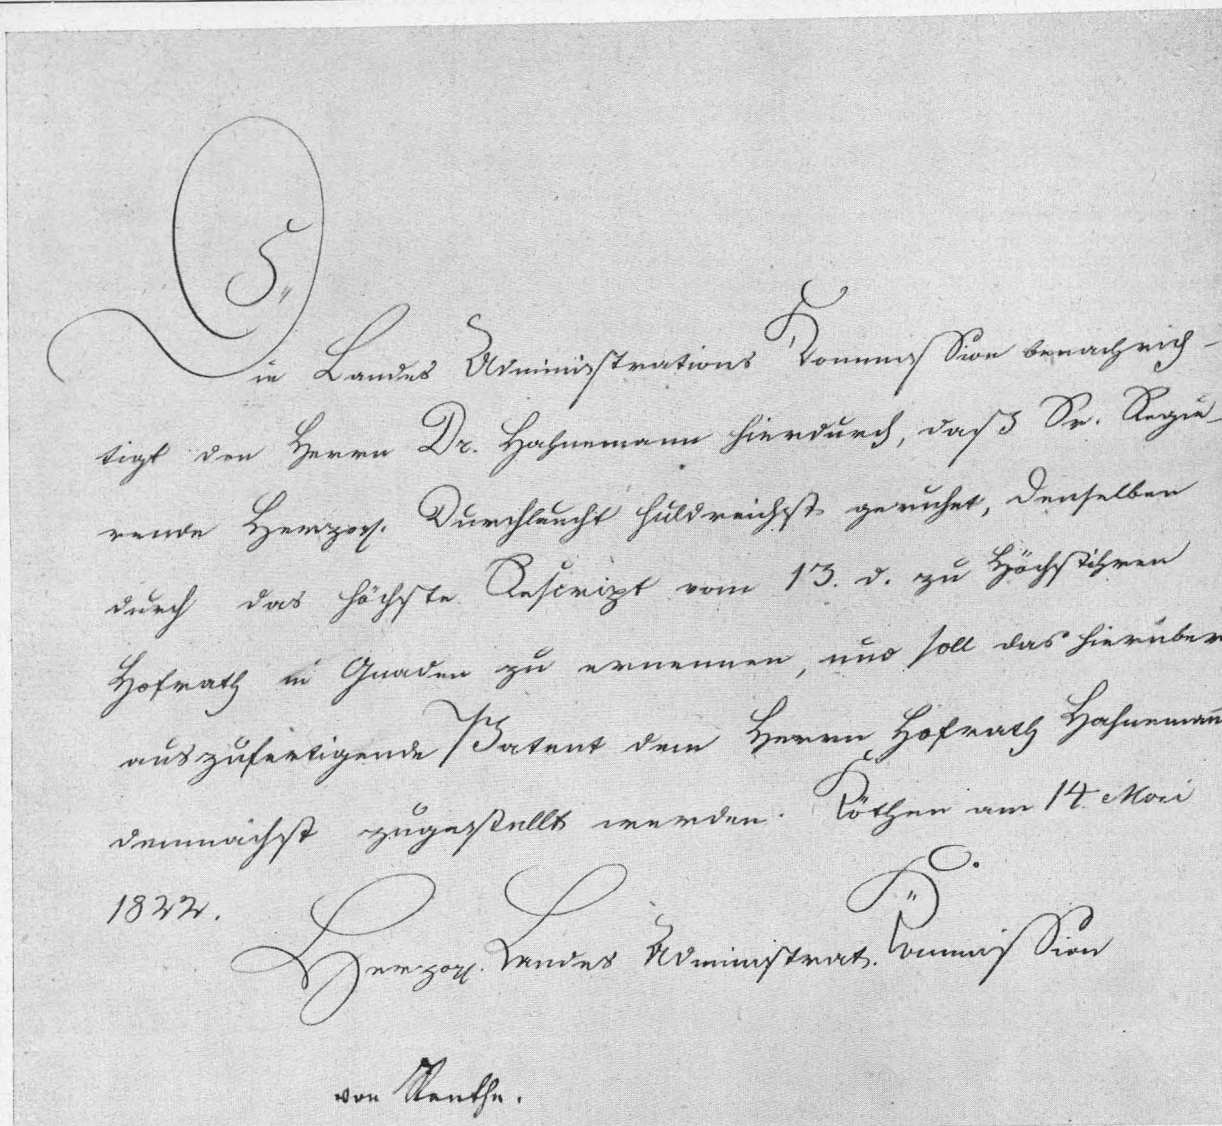 Die Landes Administrations Kommission benachrich-
tigt den Herrn Dr. Hahnemann hierdurch, daß Sr. Regie-
rende Herzogl. Durchlaucht huldreichst geruhet, denselben
durch das höchste Rescript vom 13. d. zu Höchstihren
Hofrath in Gnaden zu ernennen, und soll das hierüber
auszufertigende Patent dem Herrn Hofrath Hahnemann
demnächst zugestellt werden. Köthen am 14. Mai
1822.
Herzogl. Landes Administrat. Kommission
von Renthe.